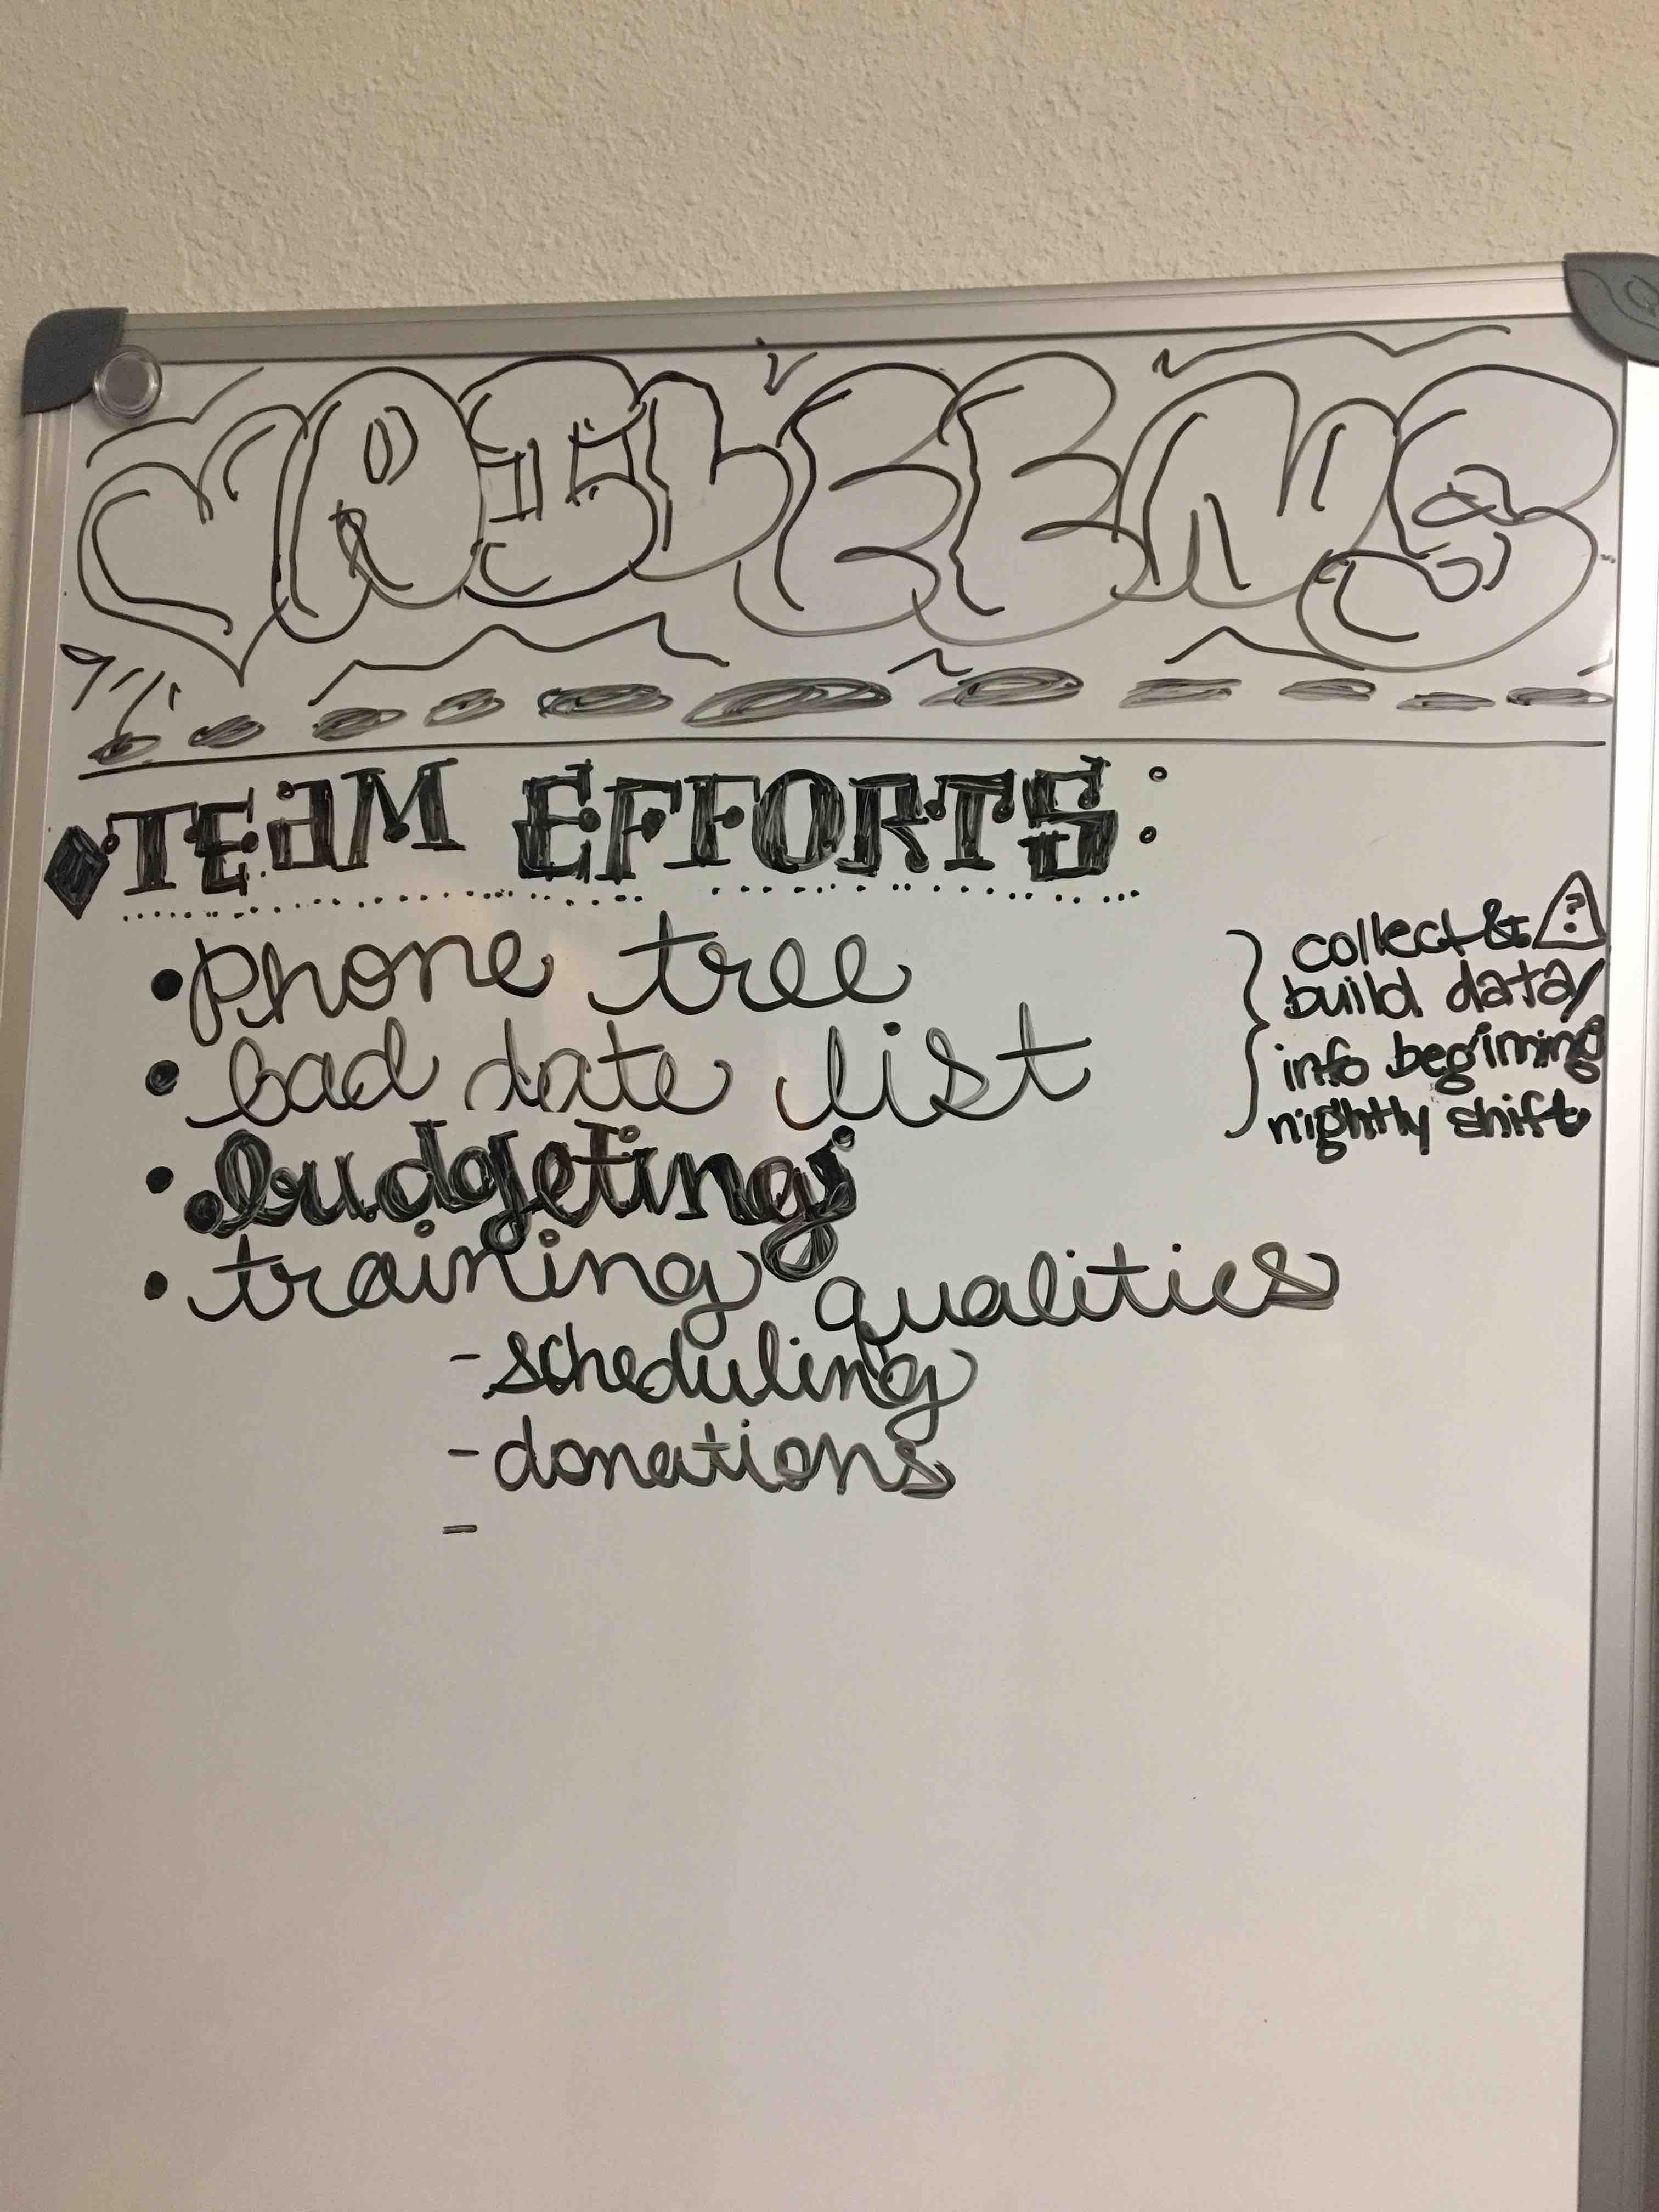 TEAM EFFORTS:
• phone tree
• bad date list
• budgeting
• training qualities
- scheduling
- donations
-
collect & ?
build data/
info begining
nightly shift